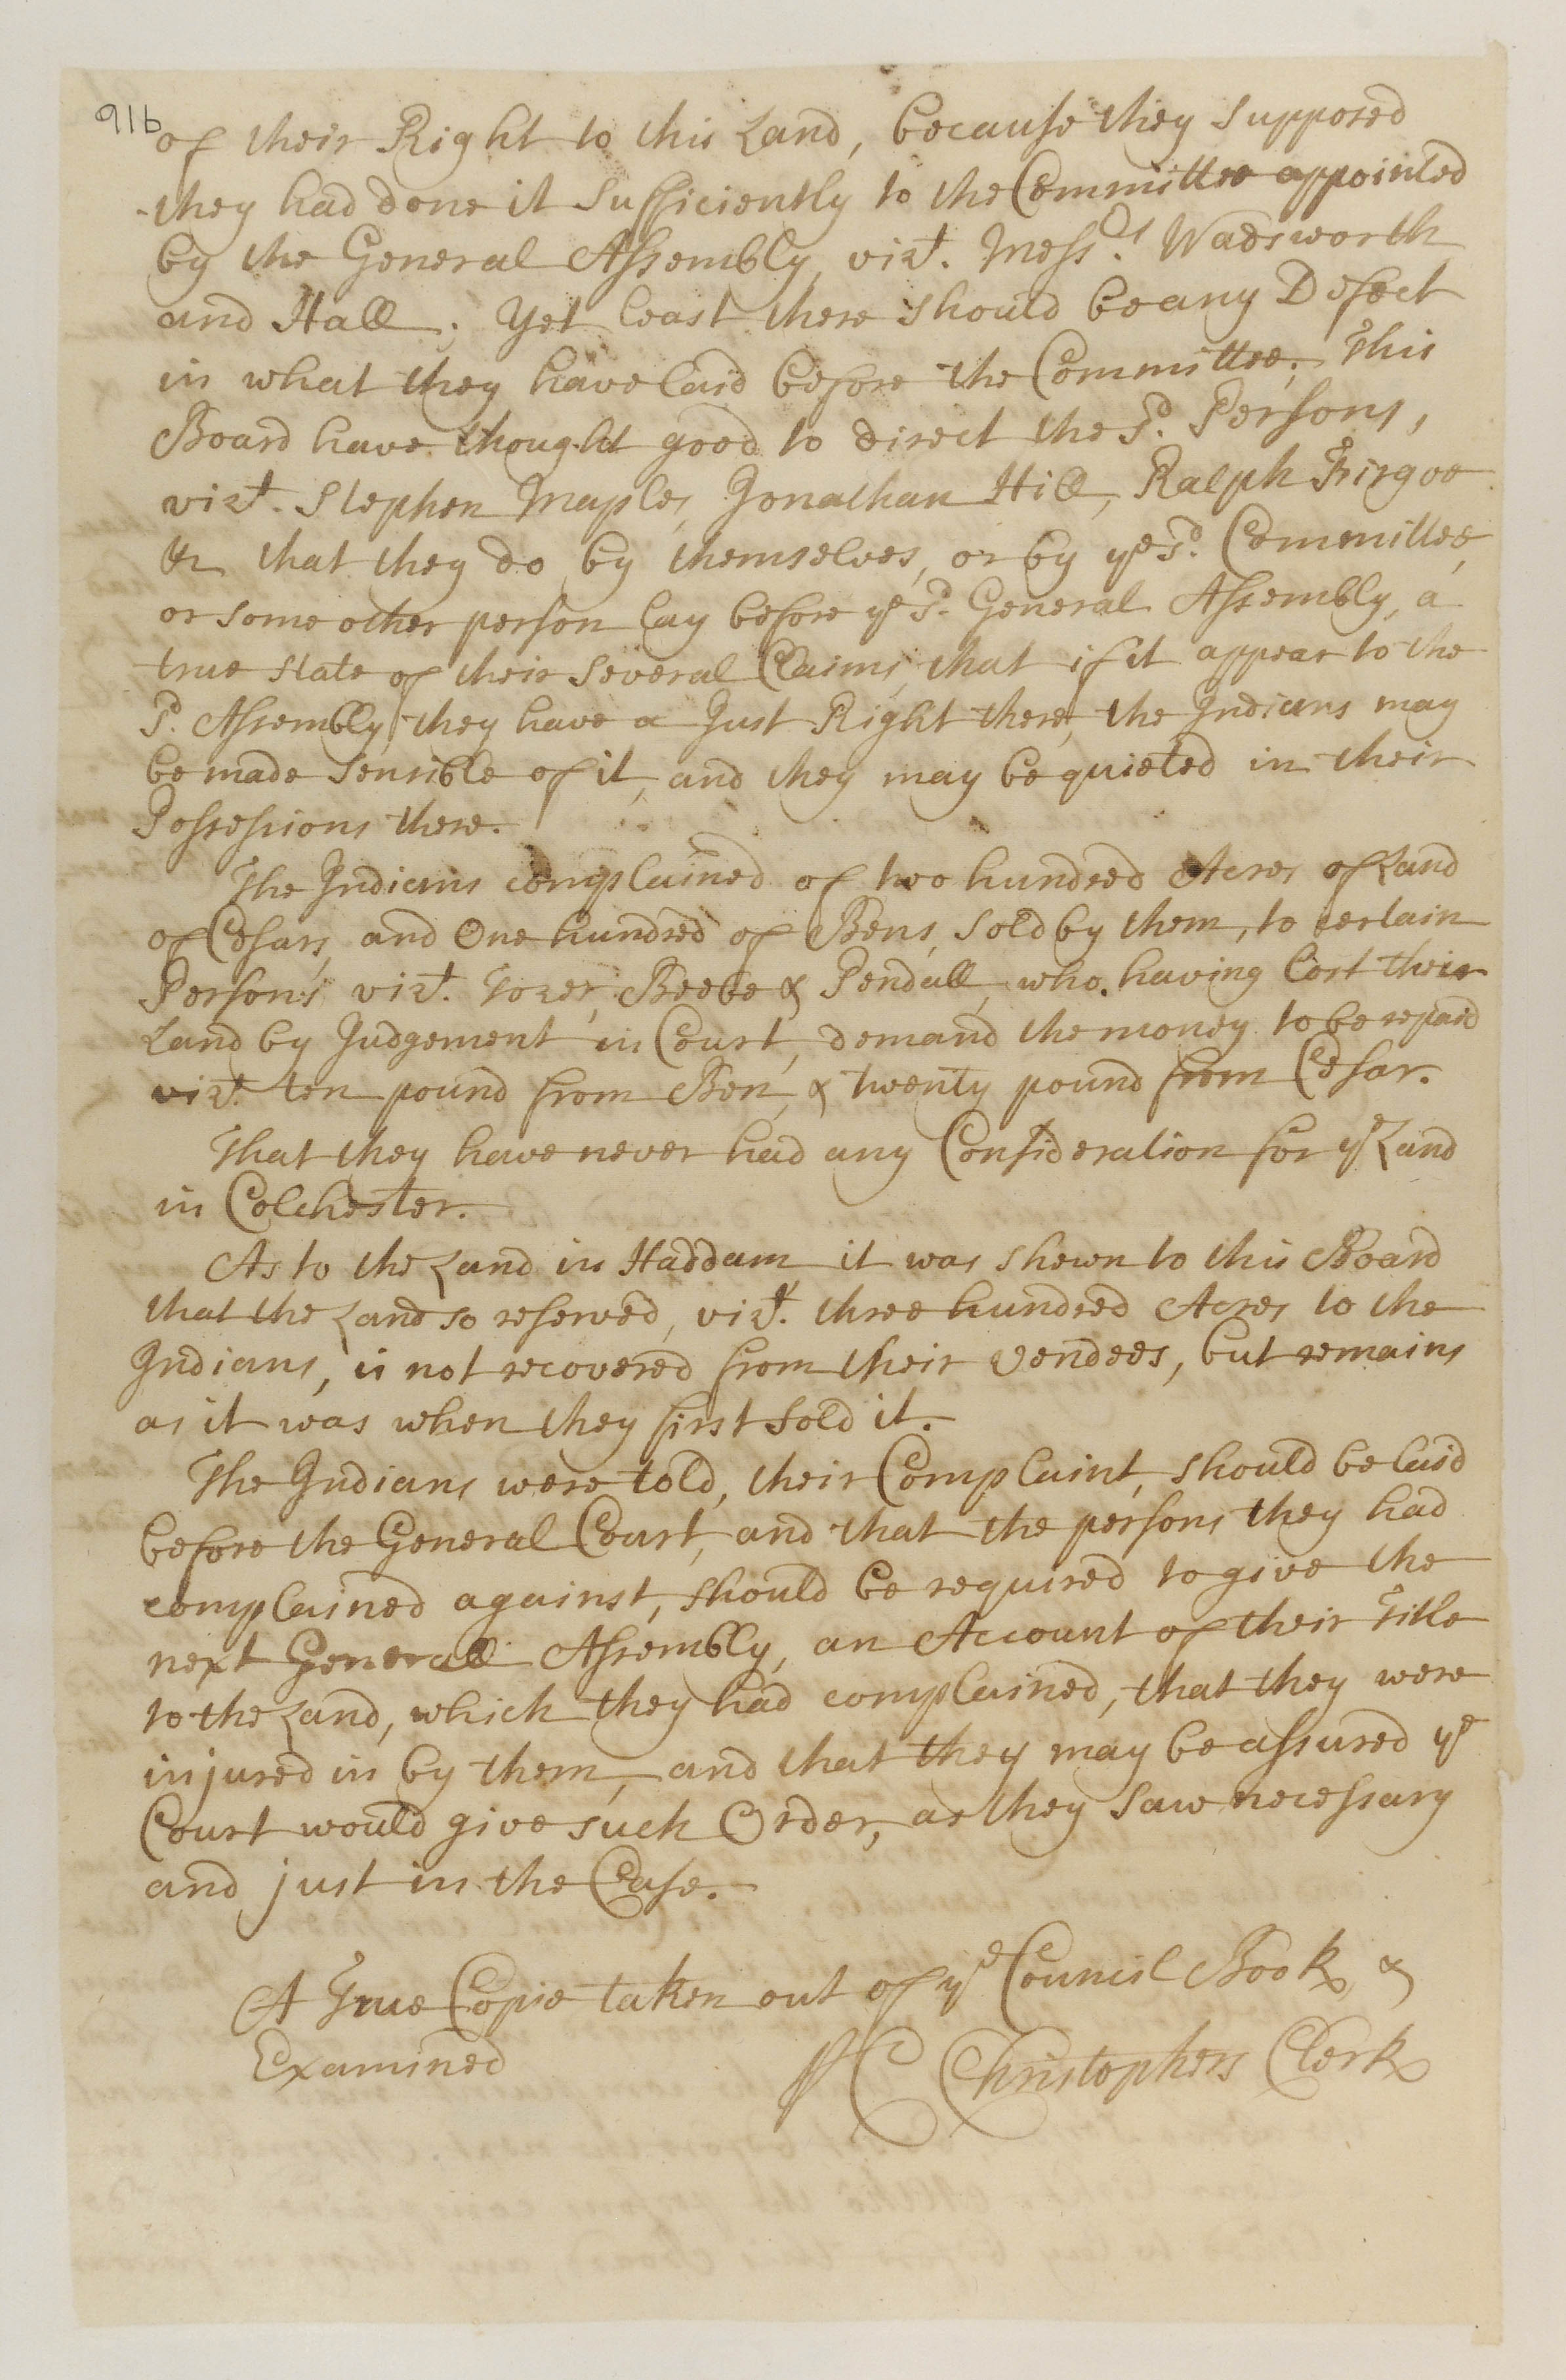 91b
of their Right to this Land, because they supposed
they had done it sufficiently to the Committee appointed
by the General Assembly, vizt. Messrs. Wadsworth
and Hall; Yet least there should be any Defect
in what they have laid before the Committee; This
Board have thought good to direct the sd. Persons,
vizt. Stephen Maples, Jonathan Hill, Ralph Firgoe
&c that they do by themselves, or by ye sd. Committee,
or some other person lay before ye sd. General Assembly, a
true state of their several Claims, that if it appear to the
sd. Assembly they have a Just Right there, the Indians may
be made sensible of it, and they may be quieted in their
Possessions there.
The Indians complained of two hundred Acres of Land
of Cesars, and One hundred of Bens, sold by them, to certain
Persons vizt. Tozer, Beebe & Pendall, who having lost their
Land by Judgement in Court, demand the money to be repaid
vizt. ten pound from Ben, & twenty pound from Cesar.
That they have never had any Consideration for ye Land
in Colchester.
As to the Land in Haddam it was shewn to this Board
that the Land so reserved, vizt. three hundred Acres to the
Indians, is not recovered from their Vendees, but remains
as it was when they first sold it.
The Indians were told, their Complaint, should be laid
before the General Court, and that the persons they had
complained against, should be required to give the
next Generall Assembly, an Account of their Title
to the Land, which they had complained, that they were
injured in by them, and that they may be assured ye
Court would give such Order, as they saw necessary
and just in the Case.
A True Copie taken out of ye Council Book, &
Examined
P C Christophers Clerk